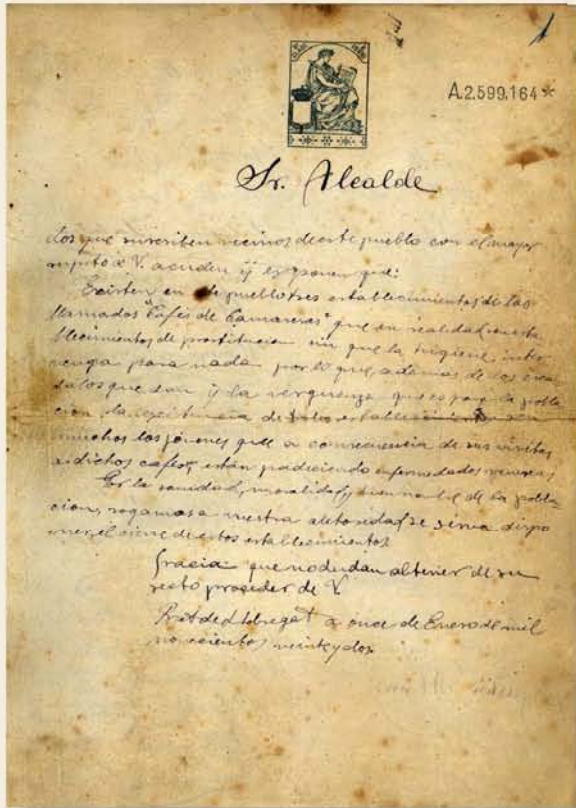 1
A.2.599.164*
Sr. Alcalde
Los que suscriben vecinos de este pueblo con el mayor
respeto a V. acuden y exponen que:
Existen en este pueblo tres establecimientos de los
llamados "Cafés de Camareras" que en realidad son esta
blecimientos de prostitucion sin que la higiene inter
venga para nada por lo que, ademas de los escan
dalos que dan y la verguenza que es para la pobla
cion la existencia de tales establecimientos son
muchos los jóvenes que a consecuencia de sus visitas
a dichos cafés, están padeciendo enfermedades venereas
Por la sanidad, moralidad y buen nombre de la pobla-
cion, rogamos a vuestra autoridad se sirva dispo
ner el cierre de estos establecimientos
Gracia que no dudan obtener de su
recto proceder de V.
Prat de Llobregat a once de Enero de mil
novecientos veintydos.